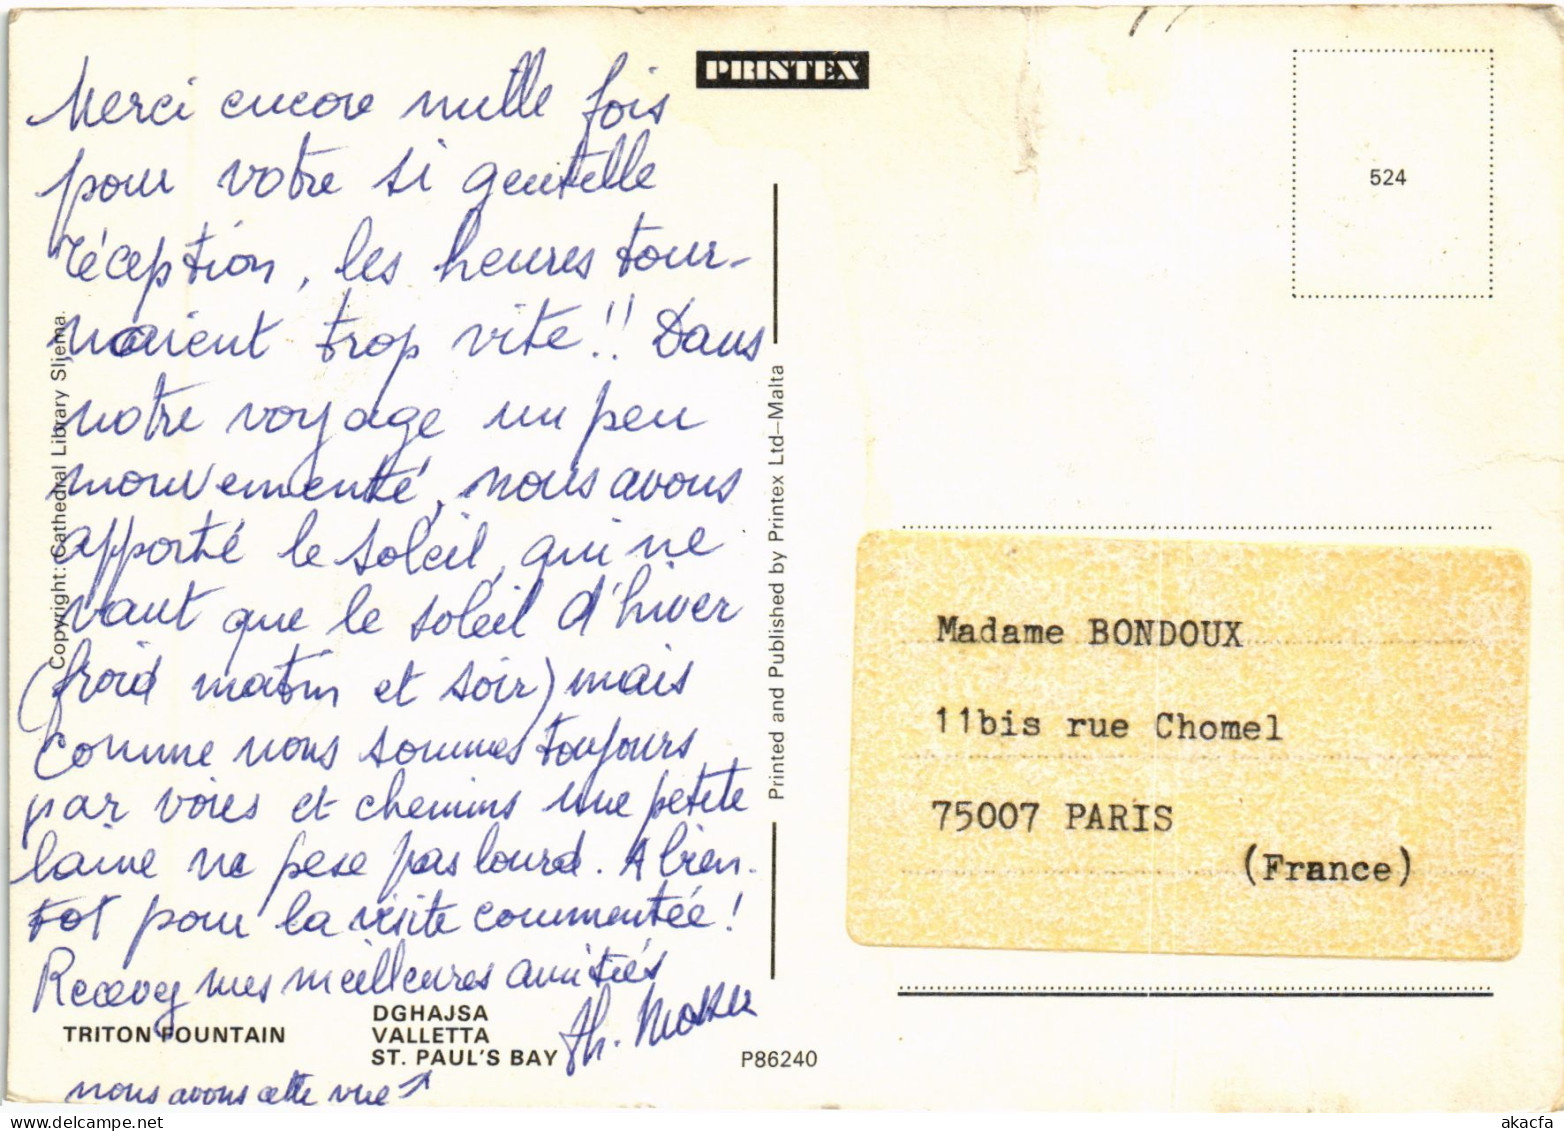 Merci encore mille fois
pour votre si gentille
réception, les heures tour-
naient trop vite!! Dans
notre voyage un peu
mouvementé, nous avons
apporté le soleil, qui ne
vaut que le soleil d'hiver
(froid matin et soir) mais
comme nous sommes toujours
par voies et chemins une petite
laine ne pese pas lourd. A bien-
tot pour la visite commentée!
Recevez mes meilleures amitiés
Th.
nous avons cette vue
TRITON FOUNTAIN
DGHAJSA
VALLETTA
ST. PAUL'S BAY
P86240
Copyright: Cathedral Library Sliema.
PRINTEX
Printed and Published by Printex Ltd—Malta
524
Madame BONDOUX
11bis rue Chomel
75007 PARIS
(France)
delcampe.net
akacfa